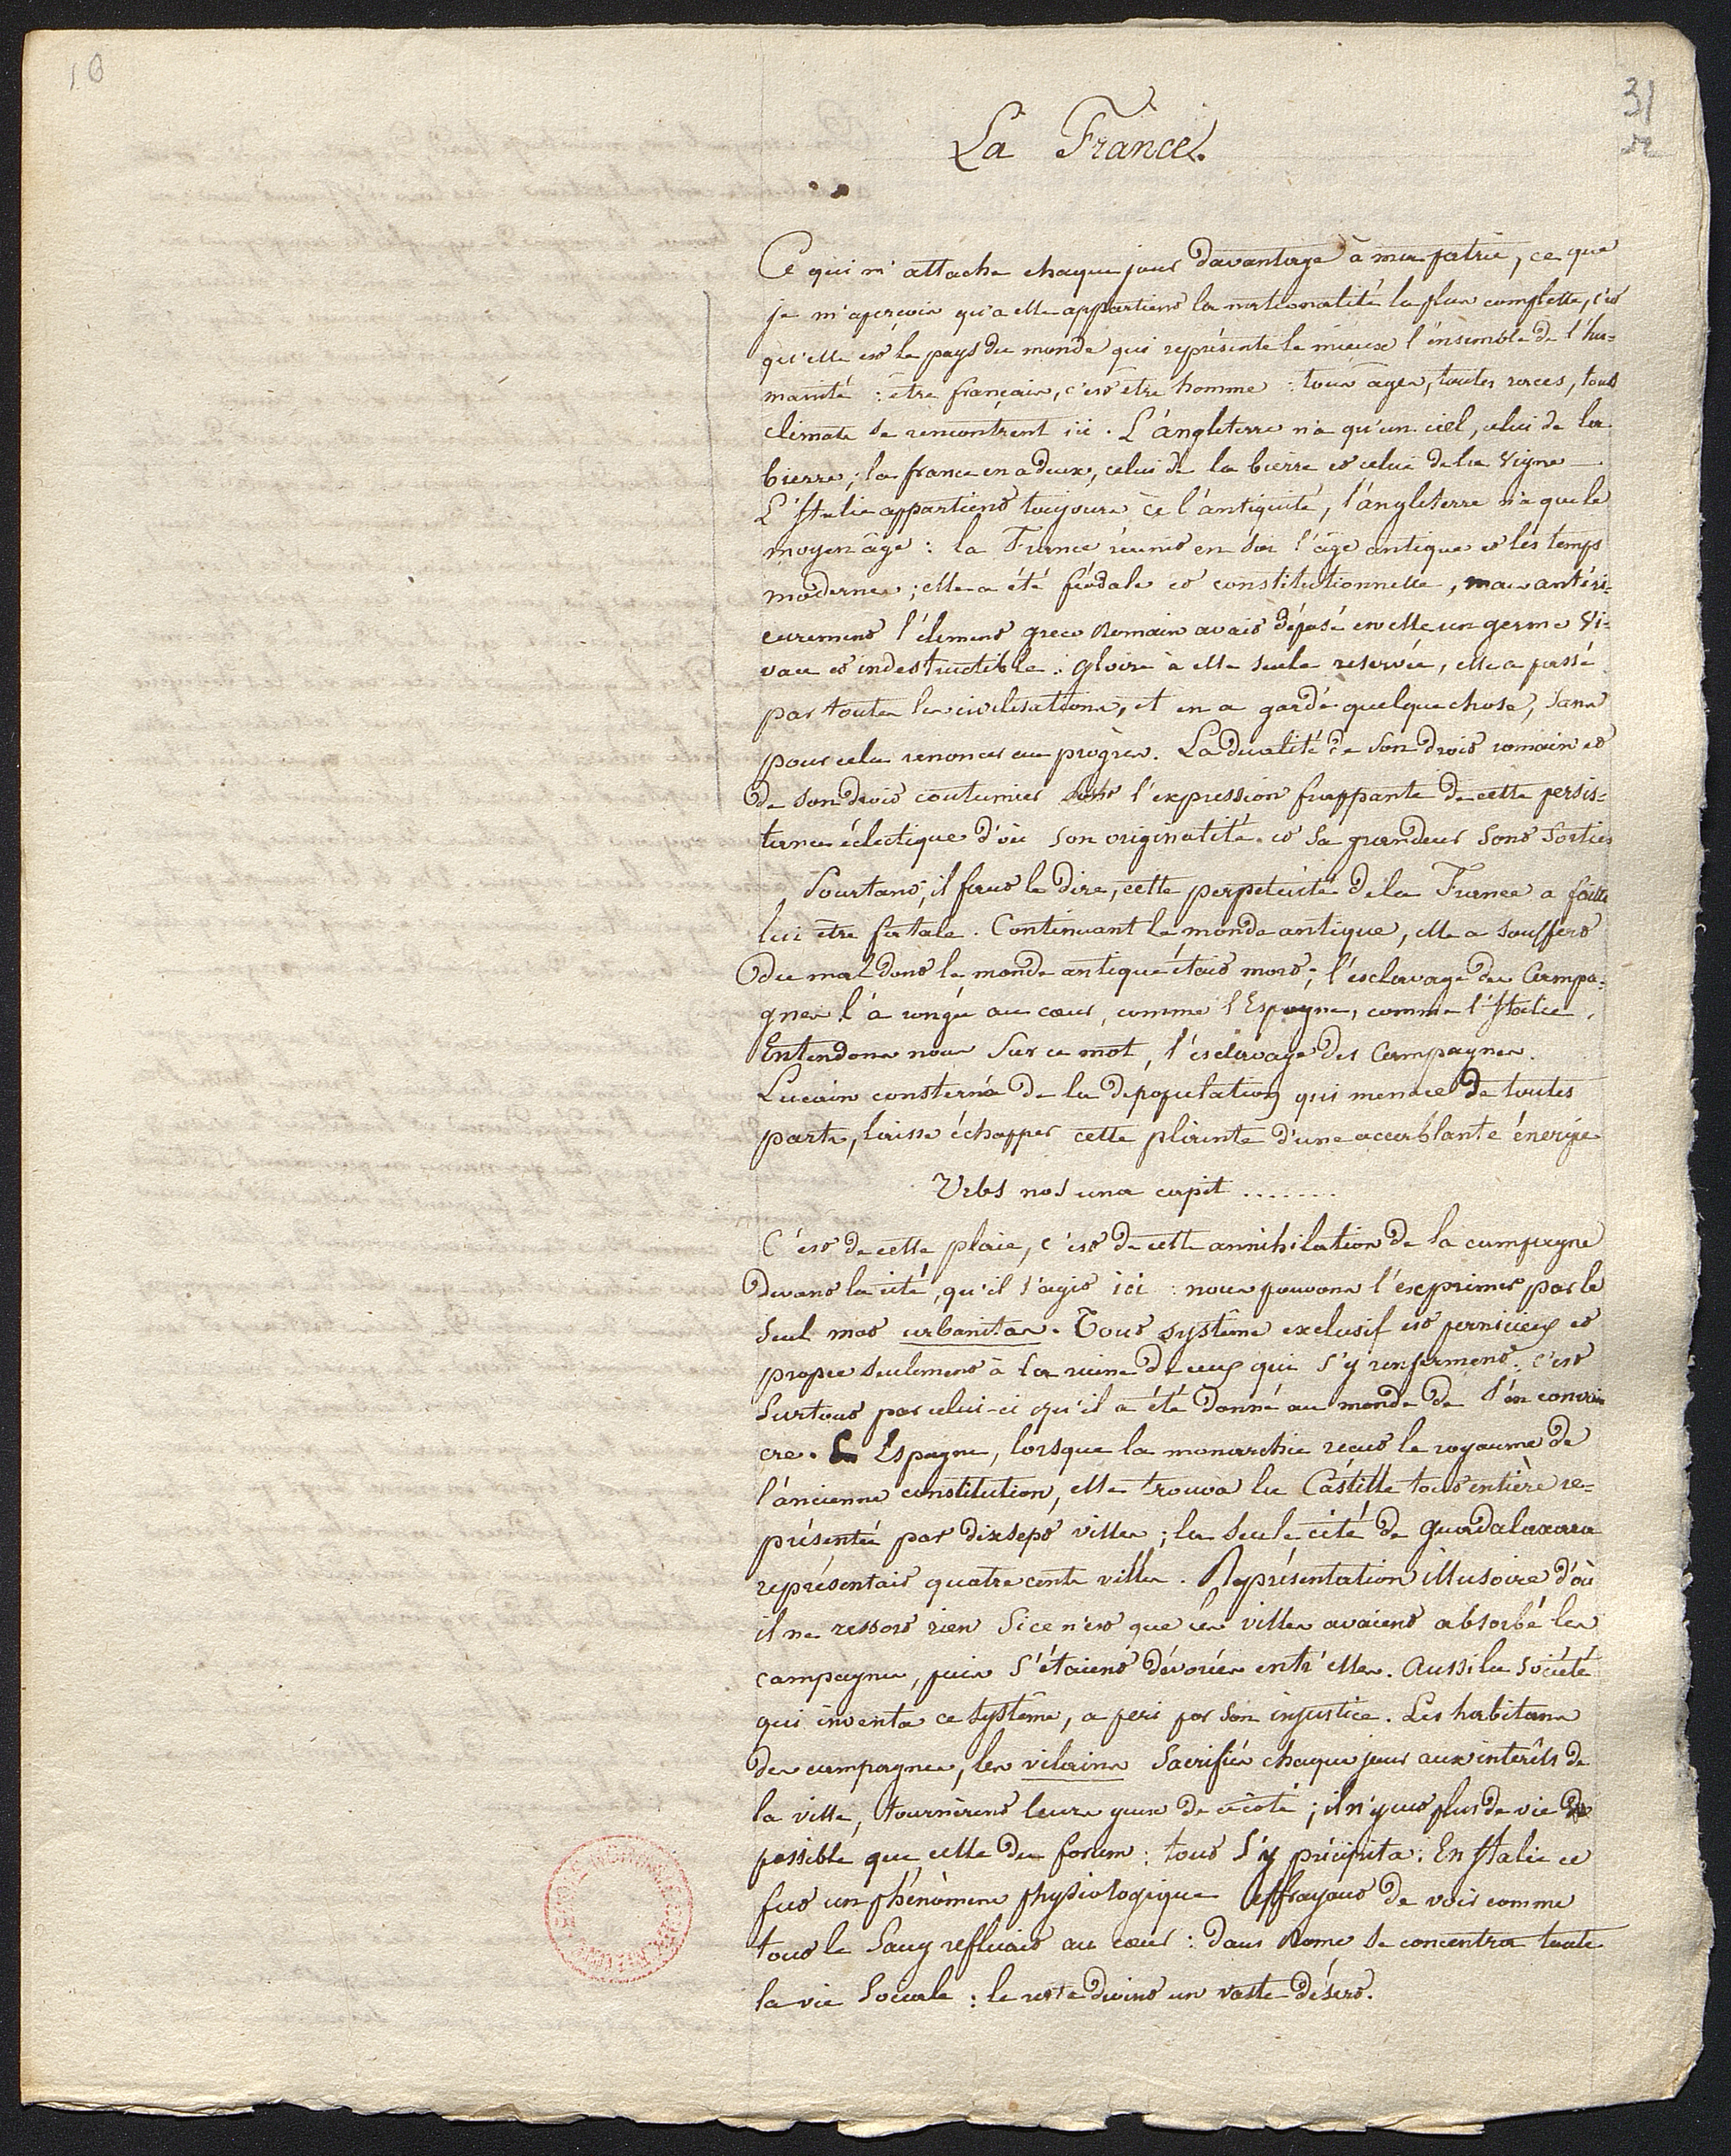 10
31
La France.
Ce qui m'attache chaque jour davantage à ma patrie, ce que
je m'aperçois qu'a elle appartient la nationalité la plus complette, c'est
qu'elle est le pays du monde qui représente le mieux l'ensemble de l'hu=
manité : être français, c'est être homme : tous âges, toutes races, tous
climats se rencontrent ici. L'angleterre n'a qu'un ciel, celui de la
bierre; la france en a deux, celui de la bierre et celui de la vigne
L'Italie appartient toujours à l'antiquité, l'angleterre n'a que le
moyen âge : la France réunit en soi l'âge antique et les temps
modernes; elle a été féodale et constitutionnelle, mais antéri=
eurement l'élément greco Romain avait déposé en elle un germe vi=
vace et indestructible : gloire à elle seule reservée, elle a passé
par toutes les civilisations, et en a gardé quelque chose, sans
pour cela renoncer au progrès. La dualité de son droit romain et
de son droit coutumier l'expression frappante de cette persis=
tance éclectique d'où son originalité et sa grandeur sont sorties
Pourtant, il faut le dire, cette perpetuité de la France a failli
lui être fatale. Continuant le monde antique, elle a souffert
du mal dont le monde antique était mort; l'esclavage des Campa=
gnes l'à rongée au cœur, comme l'Espagne, comme l'Italie.
Entendons nous sur ce mot, l'esclavage des Campagnes.
Lucain consterné de la dépopulation qui menace de toutes
parts, laisse échapper cette plainte d'une accablante énergie
Urbs nos una capit .......
C'est de cette plaie, c'est de cette annihilation de la campagne
devant la cité, qu'il s'agit ici : nous pouvons l'exprimer par le
seul mot urbanitas. Tout système exclusif est pernicieux et
propre seulement à la ruine de ceux qui s'y renferment : c'est
surtout par celui-ci qu'il a été donné au monde de s'en convain
cre. En Espagne, lorsque la monarchie reçut le royaume de
l'ancienne constitution, elle trouva la Castille tout entière re=
présentée par dixsept villes; la seule cité de Guadalaxara
représentait quatre cents villes. Représentation illusoire d'où
il ne ressort rien si ce n'est que les villes avaient absorbé les
campagnes, puis s'étaient dévorées entr'elles. Aussi la société
qui inventa ce système, a peri par son injustice. Les habitans
des campagnes, les vilains sacrifiés chaque jour aux intérêts de
la ville, tournèrent leurs yeux de ce côté; il n'y eut plus de vie
possible que celle du forum : tout s'y précipita : En Italie ce
fut un phénomène physiologique effrayant de voir comme
tout le sang refluait au cœur : dans Rome se concentra toute
la vie sociale : le reste devint un vaste désert.